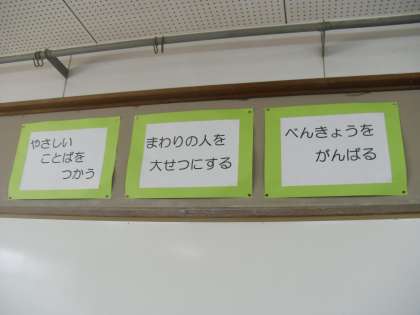 やさしい
ことばを
つかう
まわりの人を
大せつにする
べんきょうを
がんばる